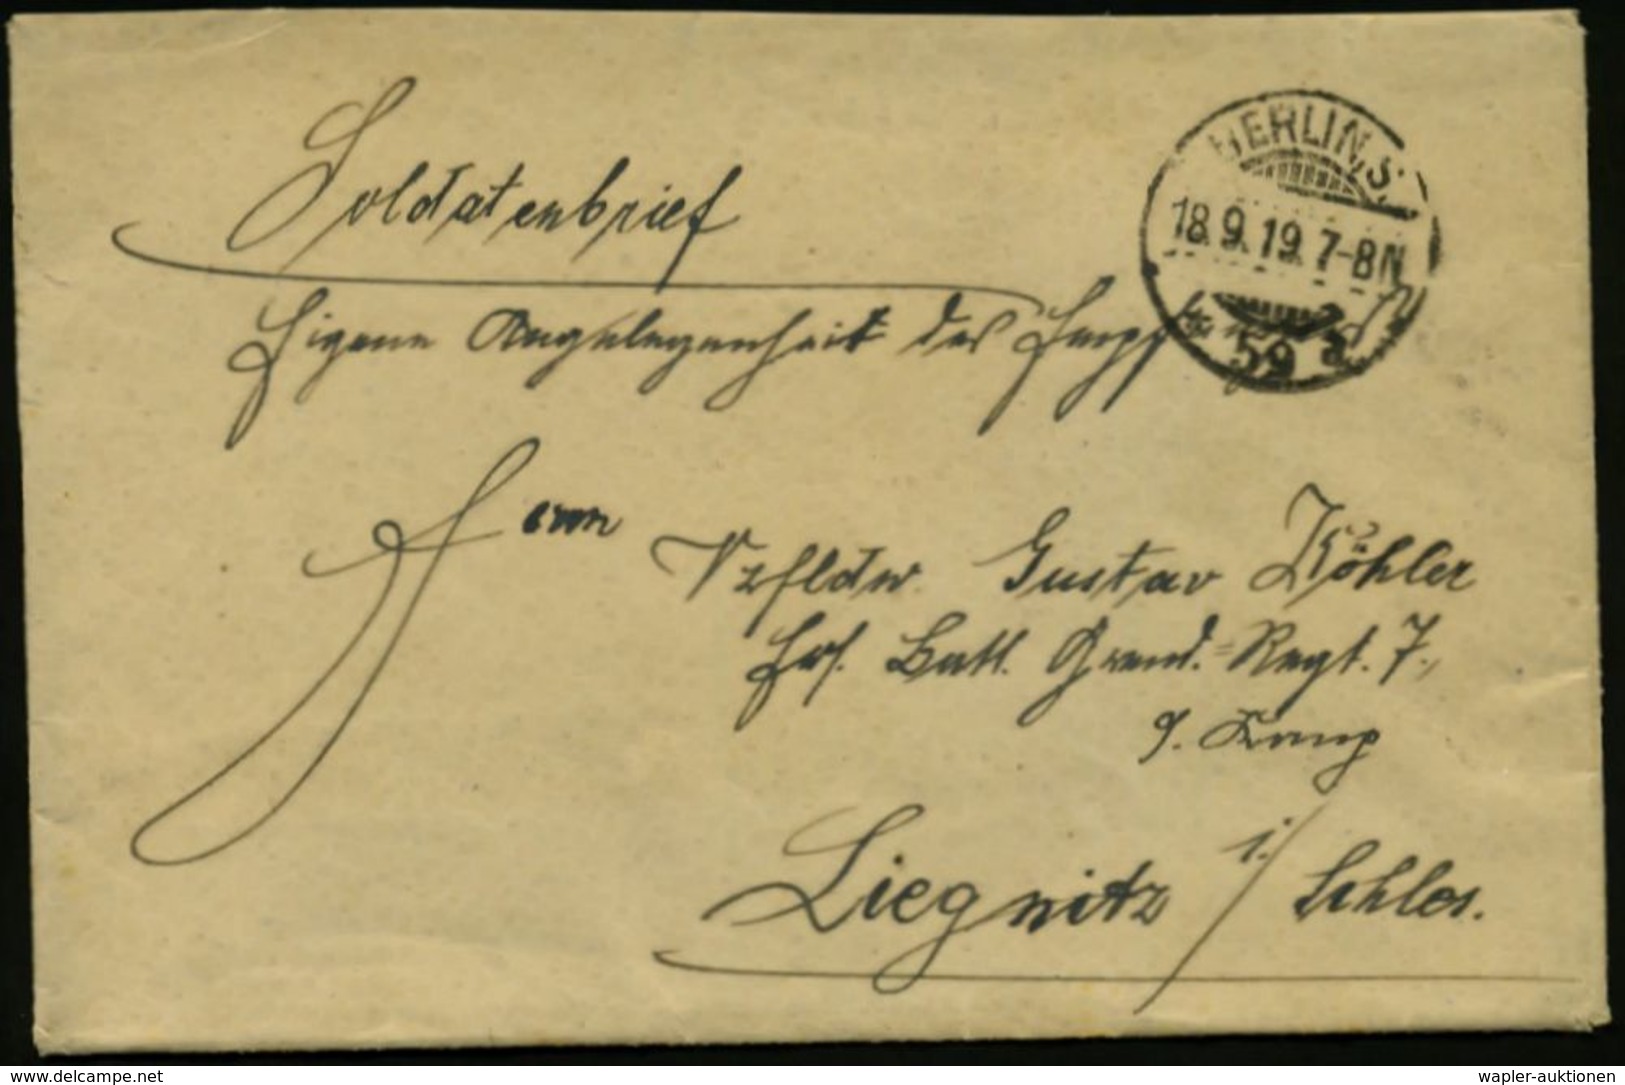 Soldatenbrief
BERLIN, S.
18.9.19. 7-8N
59 a
Eigene Angelegenheit des
Herrn
Vzfldw. Gustav Köhler
Ers. Batl. Grend.=Regt. 7.,
Komp
Liegnitz i./Schles.
www.delcampe.net
wapler-auktionen